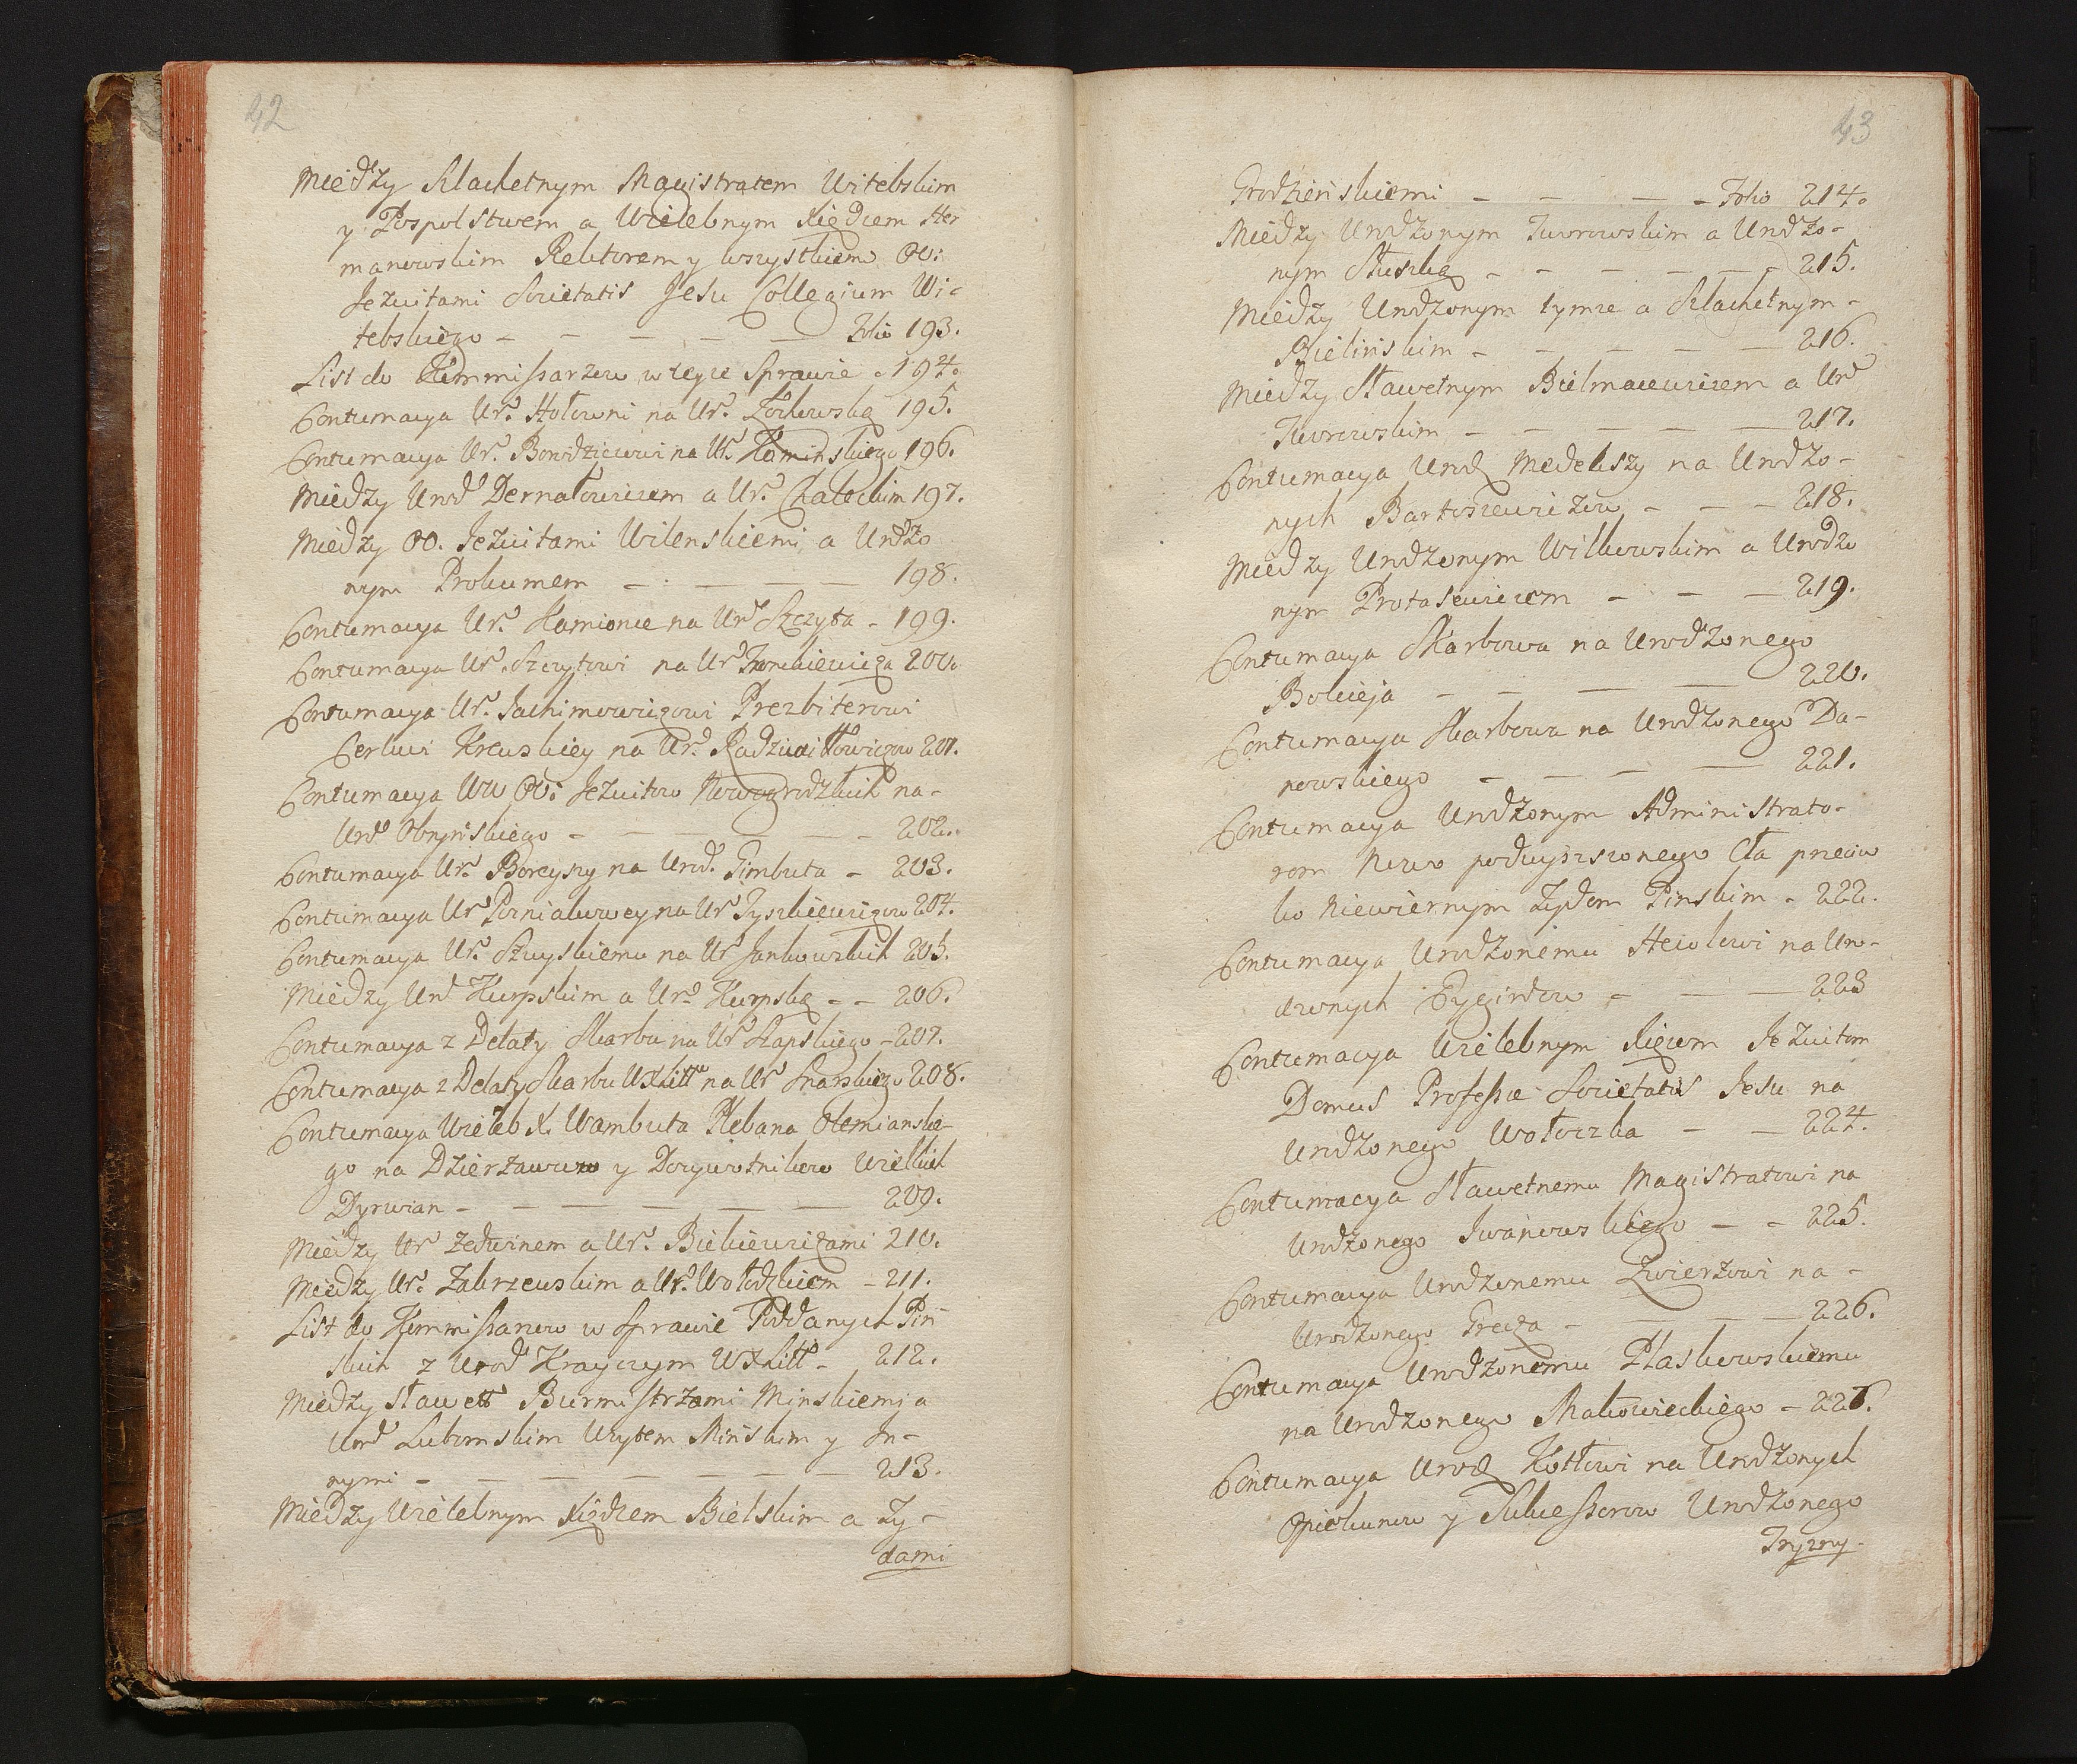 42
Między Szlachetnym Magistratem Witebskim
y Pospolstwem a Wielebnym Xiędzem Her
manowskim Rektorem y wszystkiemi OO:
Jezuitami Societatis Jesu Collegium Wi-
tebskiego — — — — — Folio 193.
List do Kommissarzow w teyze Sprawie . 194.
Contumacya Ur. Hołowni na Ur. Zochowską 195.
Contumacya Ur. Bowdziewi na Ur. Kaminskiego 196.
Między Urod Dernałowiczem a Ur. Chałeckim 197.
Między OO. Jezuitami Wilenskiemi a Urdzo
nym Prokumem — — — — 198.
Contumacya Ur. Kamionce na Urd Szczyta - 199.
Contumacya Ur. Szczytowi na Ur 200.
Contumacya Ur. Jachimowiczowi Prezbiterowi
Cerkwi Krewskiey na Ur. Radziwiłłowiczow 201.
Contumacya WW OO: Jezuitow Nowogrodzkich na-
Urd Obryńskiego — — — — — 202.
Contumacya Ur. Boreyszy na Urod. Gimbuta - 203.
Contumacya Ur Pozniakowey na Ur Tyszkiewiczow 204.
Contumacya Ur. Szuyskiemu na Ur Jankowskich 205.
Między Urd Kurpskim a Ur. Kurpską - - 206.
Contumacya z Delaty Skarbu na Ur Szapskiego - 207.
Contumacya z Delaty Skarbu WXLitt na Ur Snarskiego 208.
Contumacya Wieleb X. Wambuta Plebana Olemianskie-
go na Dzierżawcow y Dożywotnikow Wielkich
Dyrwian — — — — — — 209.
Między Ur Zedwinem a Ur. Bickiewiczami 210.
Między Ur. Zakrzewskim a Ur. Wołodzkiem - 211.
List do Kommissarzow w Sprawie Poddanych Pin
skich z Urod Krayczym WXLitt - 212.
Między Sławett Burmistrzami Minskiemi a
Urod Lubomskim Woytem Minskim y In-
nymi — — — — — — — 213.
Między Wielebnym Xiędzem Bielskim a Zy-
dami
43
Grodzieńskiemi — — — Folio 214.
Między Urodzonym Jaworowskim a Urodzo-
nym Słuszką — — — — — 215.
Między Urodzonym tymze a Szlachetnym -
Bielińskim — — — — — 216.
Między Sławetnym Bielmacewiczem a Urd
Jaworowskim — — — — — 217.
Contumacya Urod Medekszy na Urodzo-
nych Bartoszewiczow — — — 218.
Między Urodzonym Wilkowskim a Urodzo
nym Protasewiczem — — — 219.
Contumacya Skarbowa na Urodzonego
Bokieja — — — — 220.
Contumacya Skarbowa na Urodzonego Da-
nowskiego — — — — 221.
Contumacya Urodzonym Administrato-
rom Nowo podwyższonego Cła przeciw
ko Niewiernym Zydom Pinskim - 222.
Contumacya Urodzonemu Heickowi na Uro-
dzonych Eygirdow — — — 223
Contumacya Wielebnym Xięzom Jezuitom
Domus Professæ Societatis Jesu na
Urodzonego Wołoczka — — 224.
Contumacya Sławetnemu Magistratowi na
Urodzonego Iwanowskiego — - 225.
Contumacya Urodzonemu Zwierzowi na -
Urodzonego Grecza — — — 226.
Contumacya Urodzonemu Płaskowskiemu
na Urodzonego Makowieckiego - 226.
Contumacya Urod Kottowi na Urodzonych
Opiekunow y Sukcessorow Urodzonego
Tryzny.